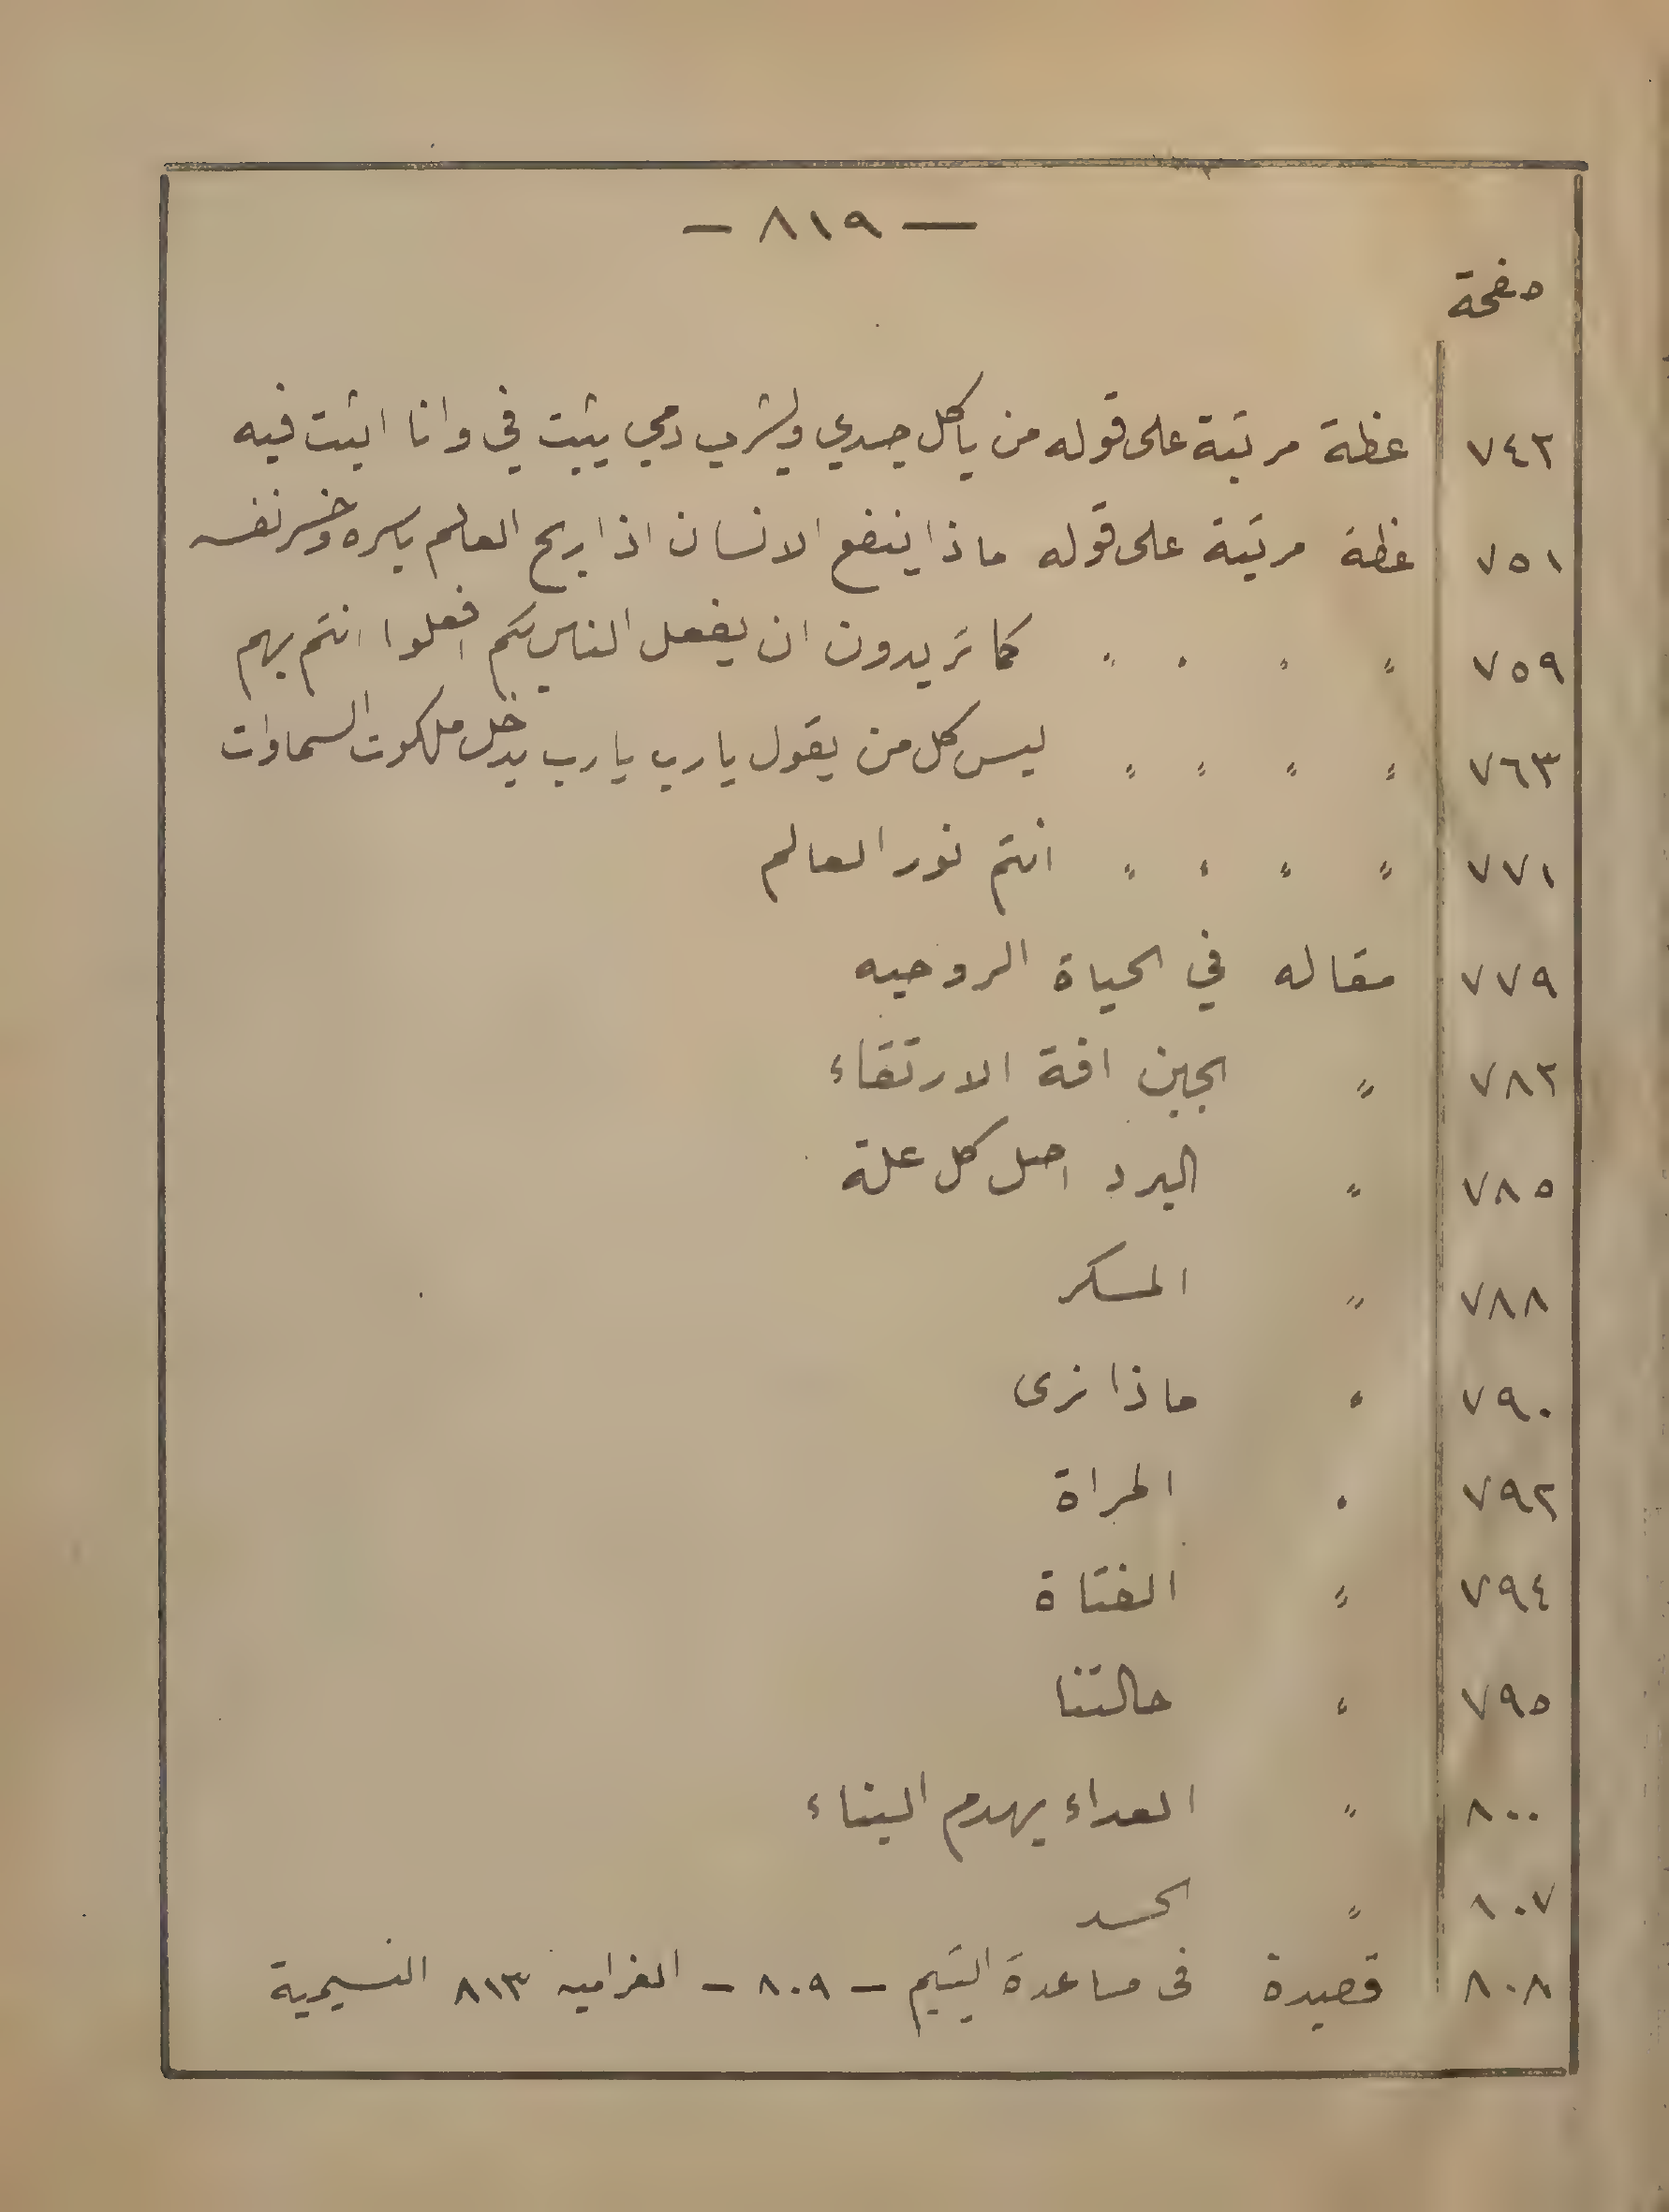 — ٨١٩ —
صفحة
٧٤٢ عظة مرتبة على قوله من ياكل جسدي ويشرب دمي يثبت في وانا اثبت فيه
٧٥١ عظة مرتبة على قوله ماذا ينفع الانسان اذا ربح العالم باسره وخسر نفسه
٧٥٩ " " " " كما تريدون ان يفعل الناس بكم افعلوا انتم بهم
٧٦٣ " " " " ليس كل من يقول يا رب يا رب يدخل ملكوت السماوات
٧٧١ " " " " انتم نور العالم
٧٧٩ مقاله في الحياة الروحيه
٧٨٢ " الجبن افة الارتقاء
٧٨٥ " البرد اصل كل علة
٧٨٨ " المسكر
٧٩٠ " ماذا نرى
٧٩٢ " المراة
٧٩٤ " الفتاة
٧٩٥ " حالتنا
٨٠٠ " العداء يهدم البناء
٨٠٧ " الحسد
٨٠٨ قصيدة فى مساعدة اليتيم — ٨٠٩ — الغراميه ٨١٣